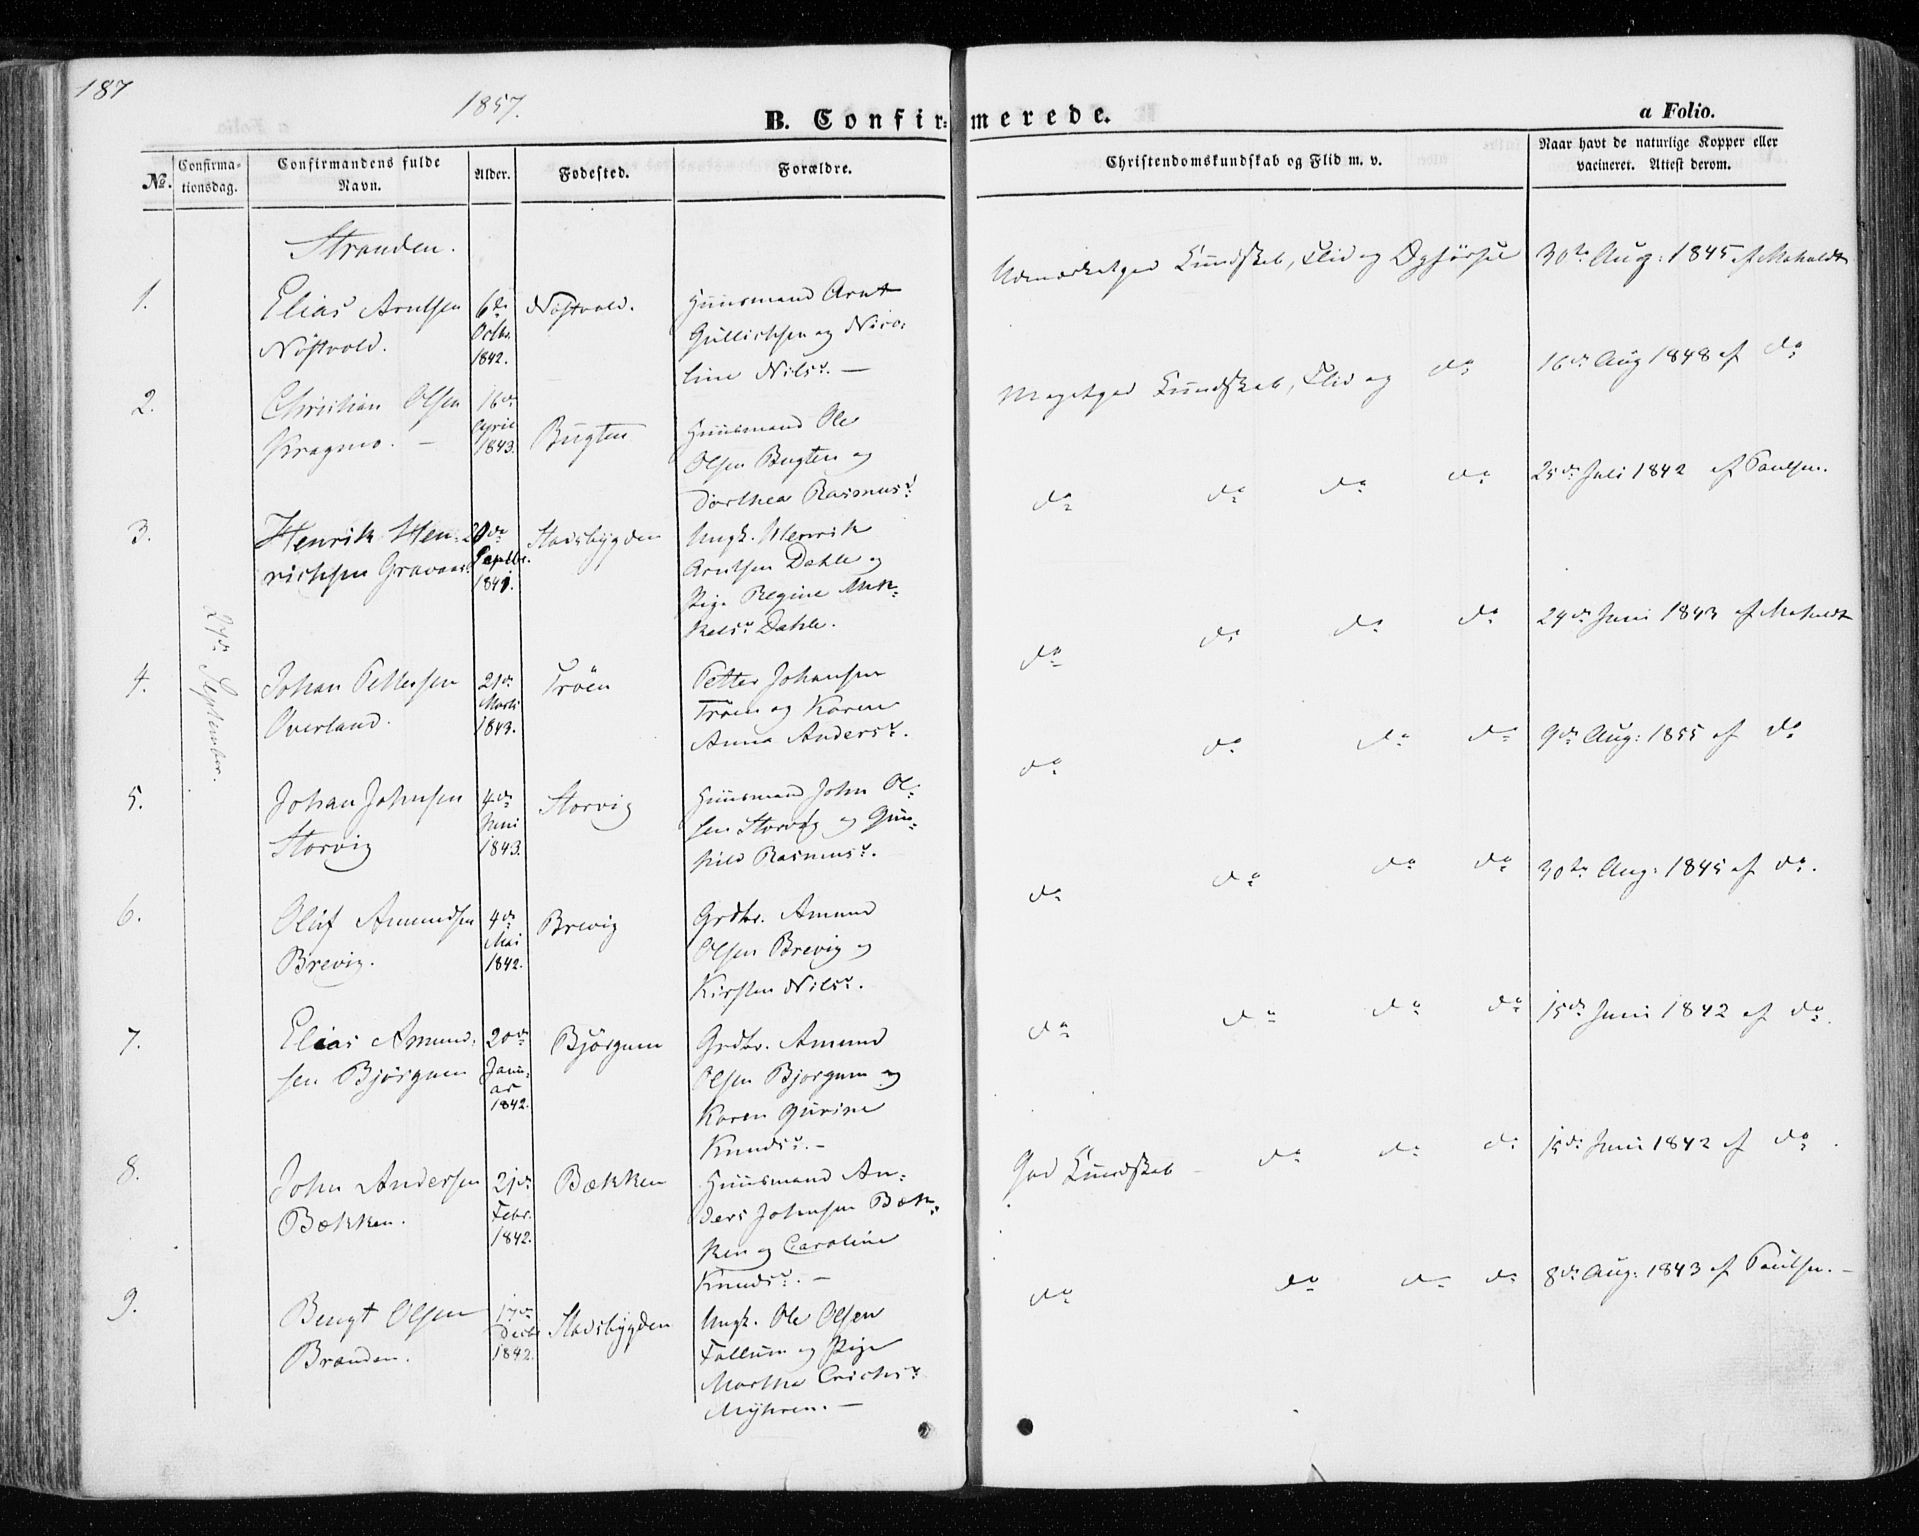 187
1857.
B. Confirmerede.
a Folio.
№.
Confirmationsdag.
Confirmandens fulde Navn.
Alder.
Fødested.
Forældre.
Christendomskundskab og Flid m. v.
Naar havt de naturlige Kopper eller vacineret. Attest derom.
Stranden.
24de September.
1.
Elias Arntsen
Nøstvold.
6te
Octbr.
1842.
Nøstvold.
Huusmand Arnt
Gullichsen og Nico-
line Nilsd. —
Udmærketgod Kundskab, Flid og Opførsel
30te Aug: 1845 af Moholdt
2.
Christian Olsen
Kragmo. —
16de
April
1843.
Bugten
Huusmand Ole
Olsen Bugten og
Dorthea Rasmusd.
Megetgod Kundskab, Flid og do
16de Aug 1848 af do
3.
Henrik Hen-
richsen Gravaas.
20de
Septbr.
1841.
Stadsbygden
Ungk. Henrik
Arntsen Dahle og
Pige Regine Mik-
kelsd. Dahle.
do do do do
25de Juli 1842 af Paulsen.
4.
Johan Pettersen
Overland.
21de
Marts
1843.
Trøen
Petter Johansen
Trøen og Karen
Anna Andersd.
do do do do
24de Juni 1843 af Moholdt
5.
Johan Johnsen
Storvig
4de
Juni
1843.
Storvig
Huusmand John Ol-
sen Storvig og Gun-
hild Rasmusd.
do do do do
9de Aug: 1855 af do
6.
Oluf Amundsen
Brevig.
4de
Mai
1842.
Brevig
Grdbr. Amund
Olsen Brevig og
Kirsten Nilsd.
do do do do
30te Aug: 1845 af do.
7.
Elias Amund-
sen Bjørgum
20de
Janu-
ar
1842.
Bjørgum
Grdbr. Amund
Olsen Bjorgum og
Karen Gurine
Knudsd. —
do do do do
15de Juni 1842 af do.
8.
John Andersen
Bækken.
21de
Febr.
1842.
Bækken
Huusmand An-
ders Johnsen Bæk-
ken og Caroline
Knudsd. —
God Kundskab do do do
15de Juni 1842 af do.
9.
Bengt Olsen
Branden.
17de
Decbr
1842.
Stadsbygden
Ungk. Ole Olsen
Fallum og Pige
Martha Erichsd.
Myhren. —
do do do do
8de Aug: 1843 af Paulsen. —